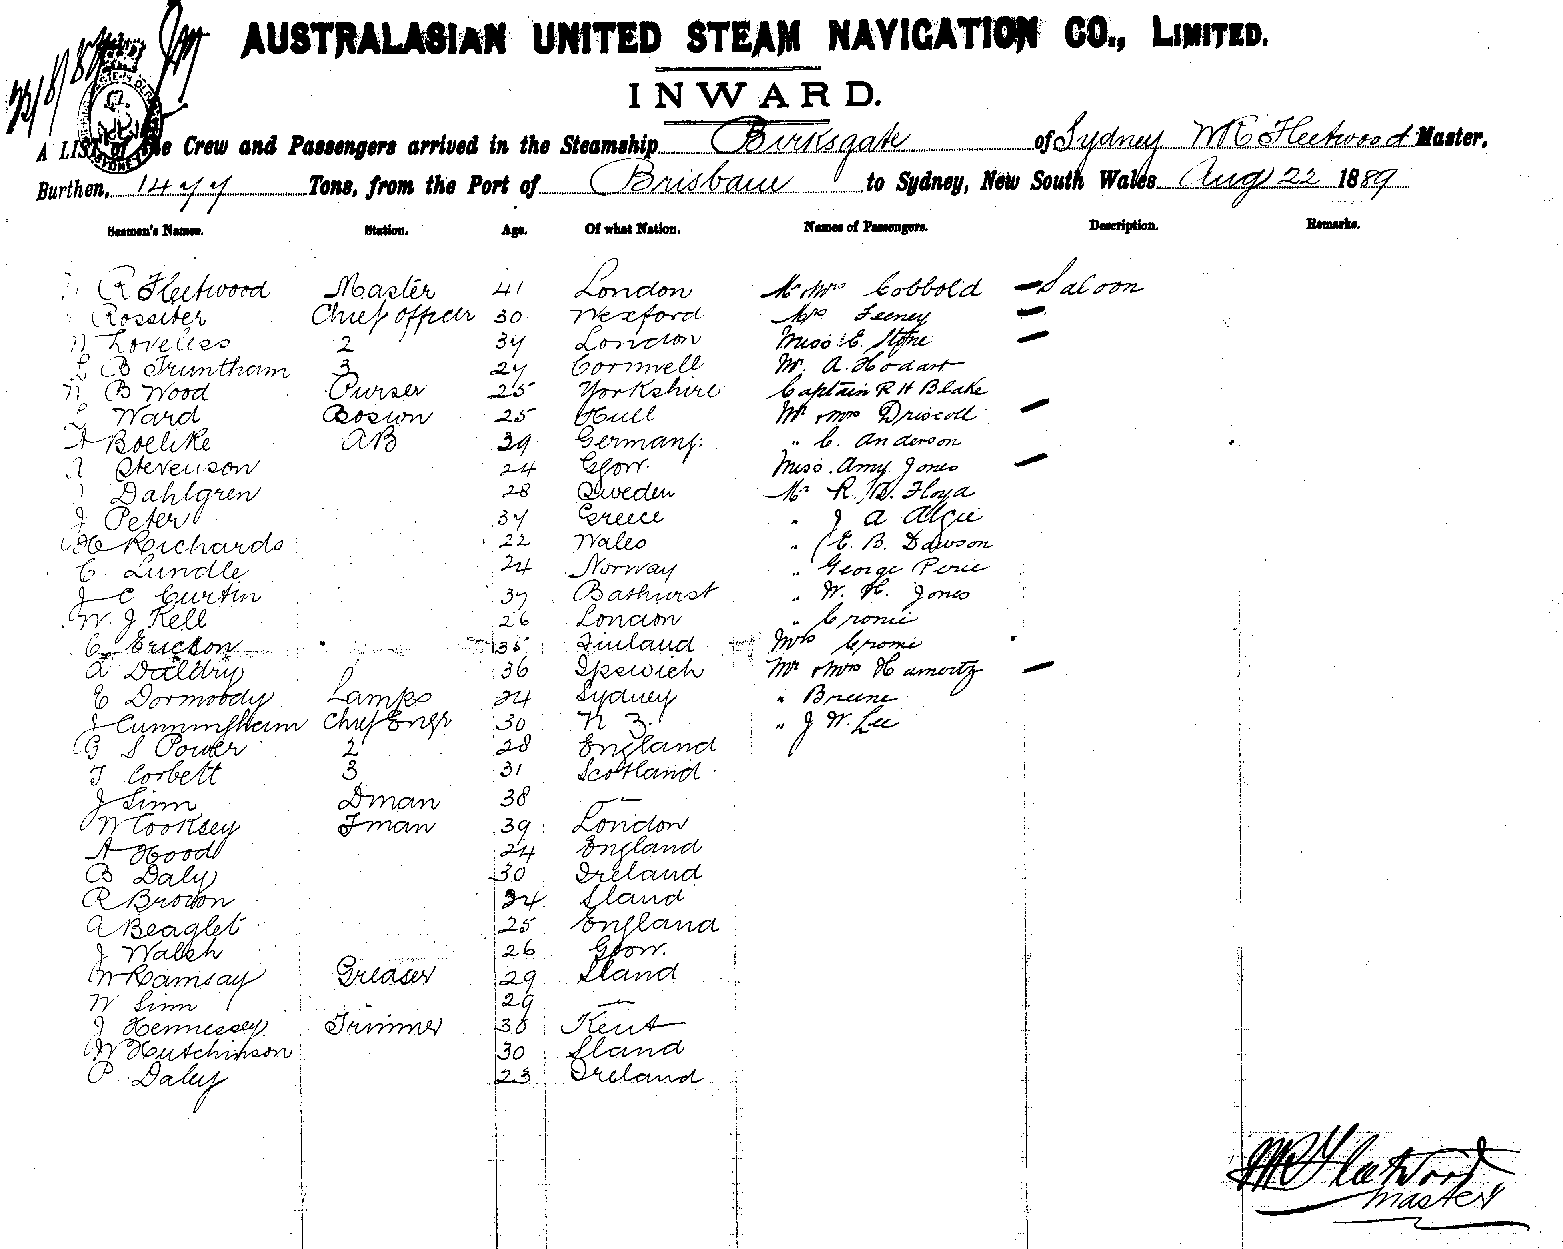 22/8/89
AUSTRALASIAN UNITED STEAM NAVIGATION CO., LIMITED.
INWARD.
A LIST of the Crew and Passengers arrived in the Steamship Birksgate of Sydney W R Fleetwood Master,
Burthen, 1477 Tons, from the Port of Brisbane to Sydney, New South Wales Aug 22 1889
Seamen's Names. Station. Age. Of what Nation. Names of Passengers. Description. Remarks.
R Fleetwood Master 41 London Mr Mrs Cobbold — Saloon
Rossiter Chief officer 30 Wexford Mrs Feeney —
Loveless 2 37 London Miss E. Stone —
B Truntham 3 27 Cornwell Mr. A. Hodart
N B Wood Purser 25 Yorkshire Captain R H Blake
Ward Bosion 25 Hull Mr & Mrs Driscoll —
A Boelike AB 39 Germany " C. Anderson
Stevenson 24 Glow. Miss. Amy Jones —
Dahlgren 28 Sweden Mr R. D. Floyd
J Peter 37 Greece " J A Algie
H Richards 22 Wales " E. B. Dawson
C Lundle 24 Norway " George Pirie
J C Curtin 37 Bathurst " W. H. Jones
W. J Kell 26 London " Cromie
C Ericson 35 Finland Mrs Cromie
A Daldry 36 Ipswich Mr & Mrs —
E Dormoody Lamps 24 Sydney " Breene
J Cunningham Chief Engr 30 N Z. " J W. Lee
B S Power 2 28 England
T Corbett 3 31 Scotland
J Sinn Dman 38 —
W Cooksey Fman 39 London
A Hood 24 England
B Daly 30 Ireland
R Brown 34 Sland
A Beaglet 25 England
J Walsh 26 Glow.
W Ramsay Greaser 29 Sland
W Sinn 29 —
J Hennessey Trimmer 30 Kent
W Hutchinson 30 Sland
P Daley 23 Ireland
W R Fleetwood
Master